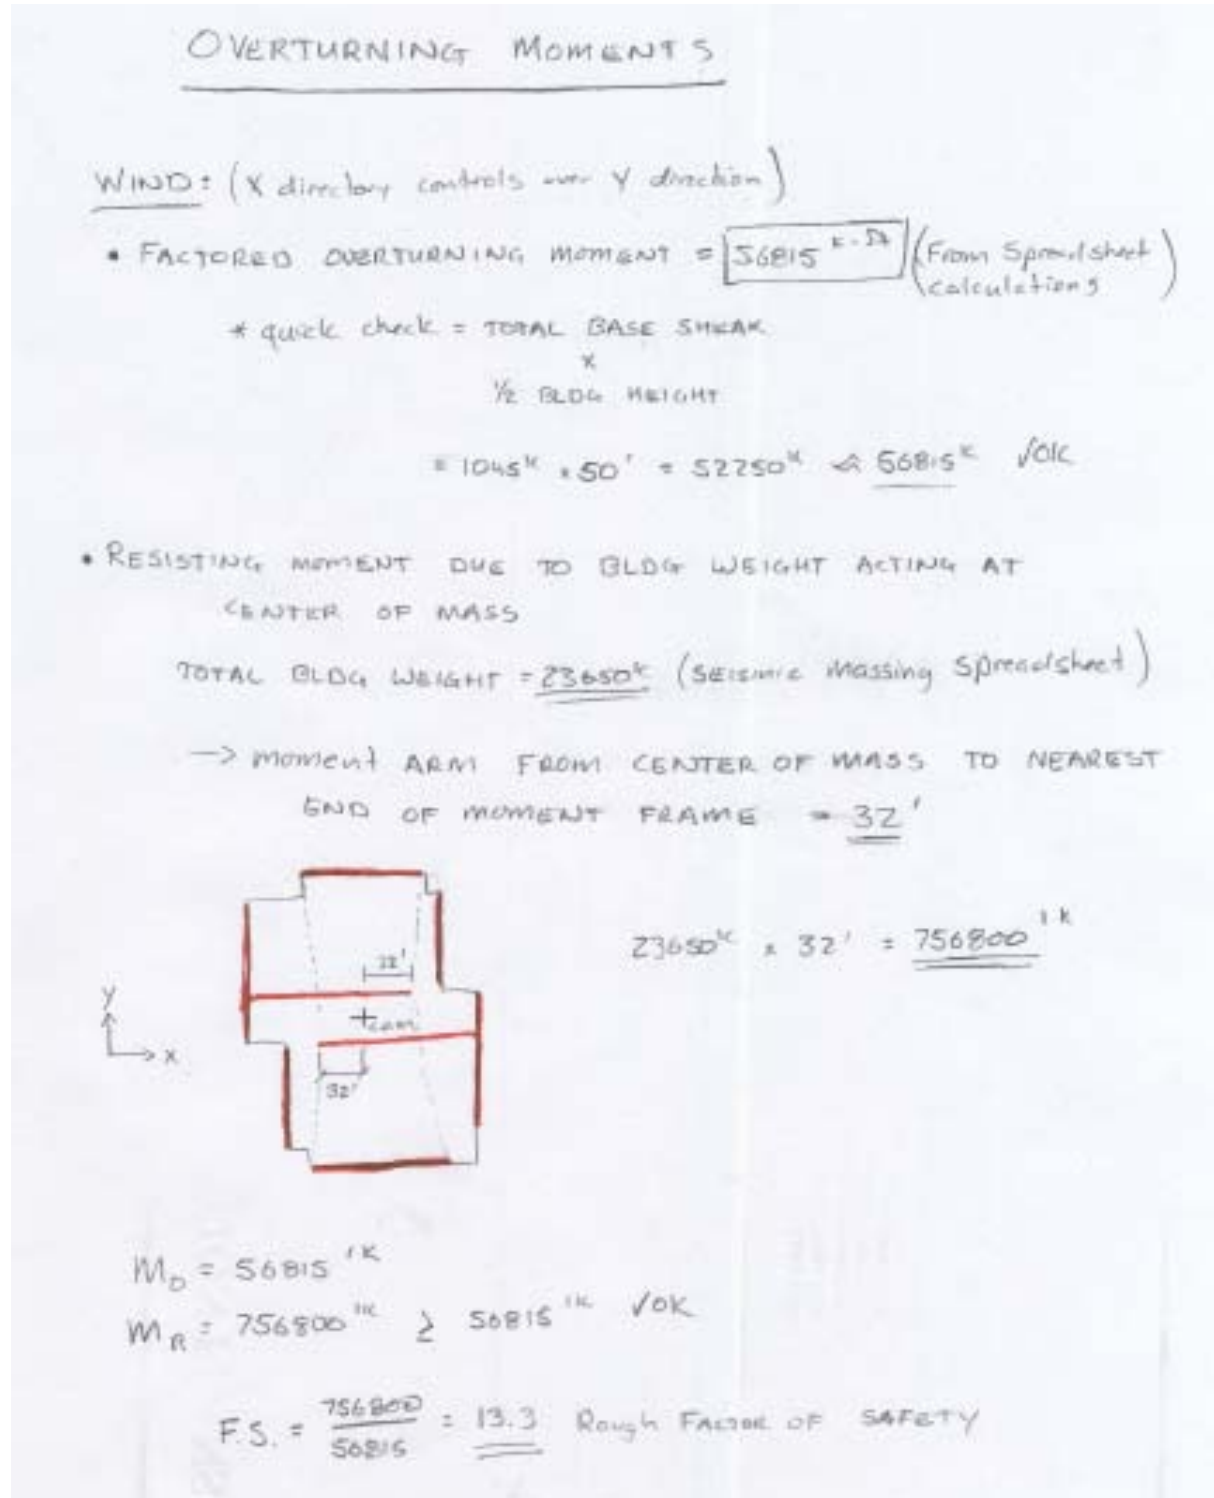 OVERTURNING MOMENTS
WIND: (X directory controls over Y direction)
• FACTORED OVERTURNING MOMENT = 56815 k-ft (From Spreadsheet calculations)
* quick check = TOTAL BASE SHEAR
x
1/2 BLDG HEIGHT
= 1045k x 50' = 52250k ≈ 56815k √OK
• RESISTING MOMENT DUE TO BLDG WEIGHT ACTING AT
CENTER OF MASS
TOTAL BLDG WEIGHT = 23650k (SEISMIC Massing Spreadsheet)
-> moment ARM FROM CENTER OF MASS TO NEAREST
END OF MOMENT FRAME = 32'
23650k x 32' = 756800 'k
32'
y
+com
x
32'
MO = 56815 'k
MR = 756800 'k ≥ 56815 'k √OK
F.S. = 756800/56815 = 13.3 Rough FACTOR OF SAFETY